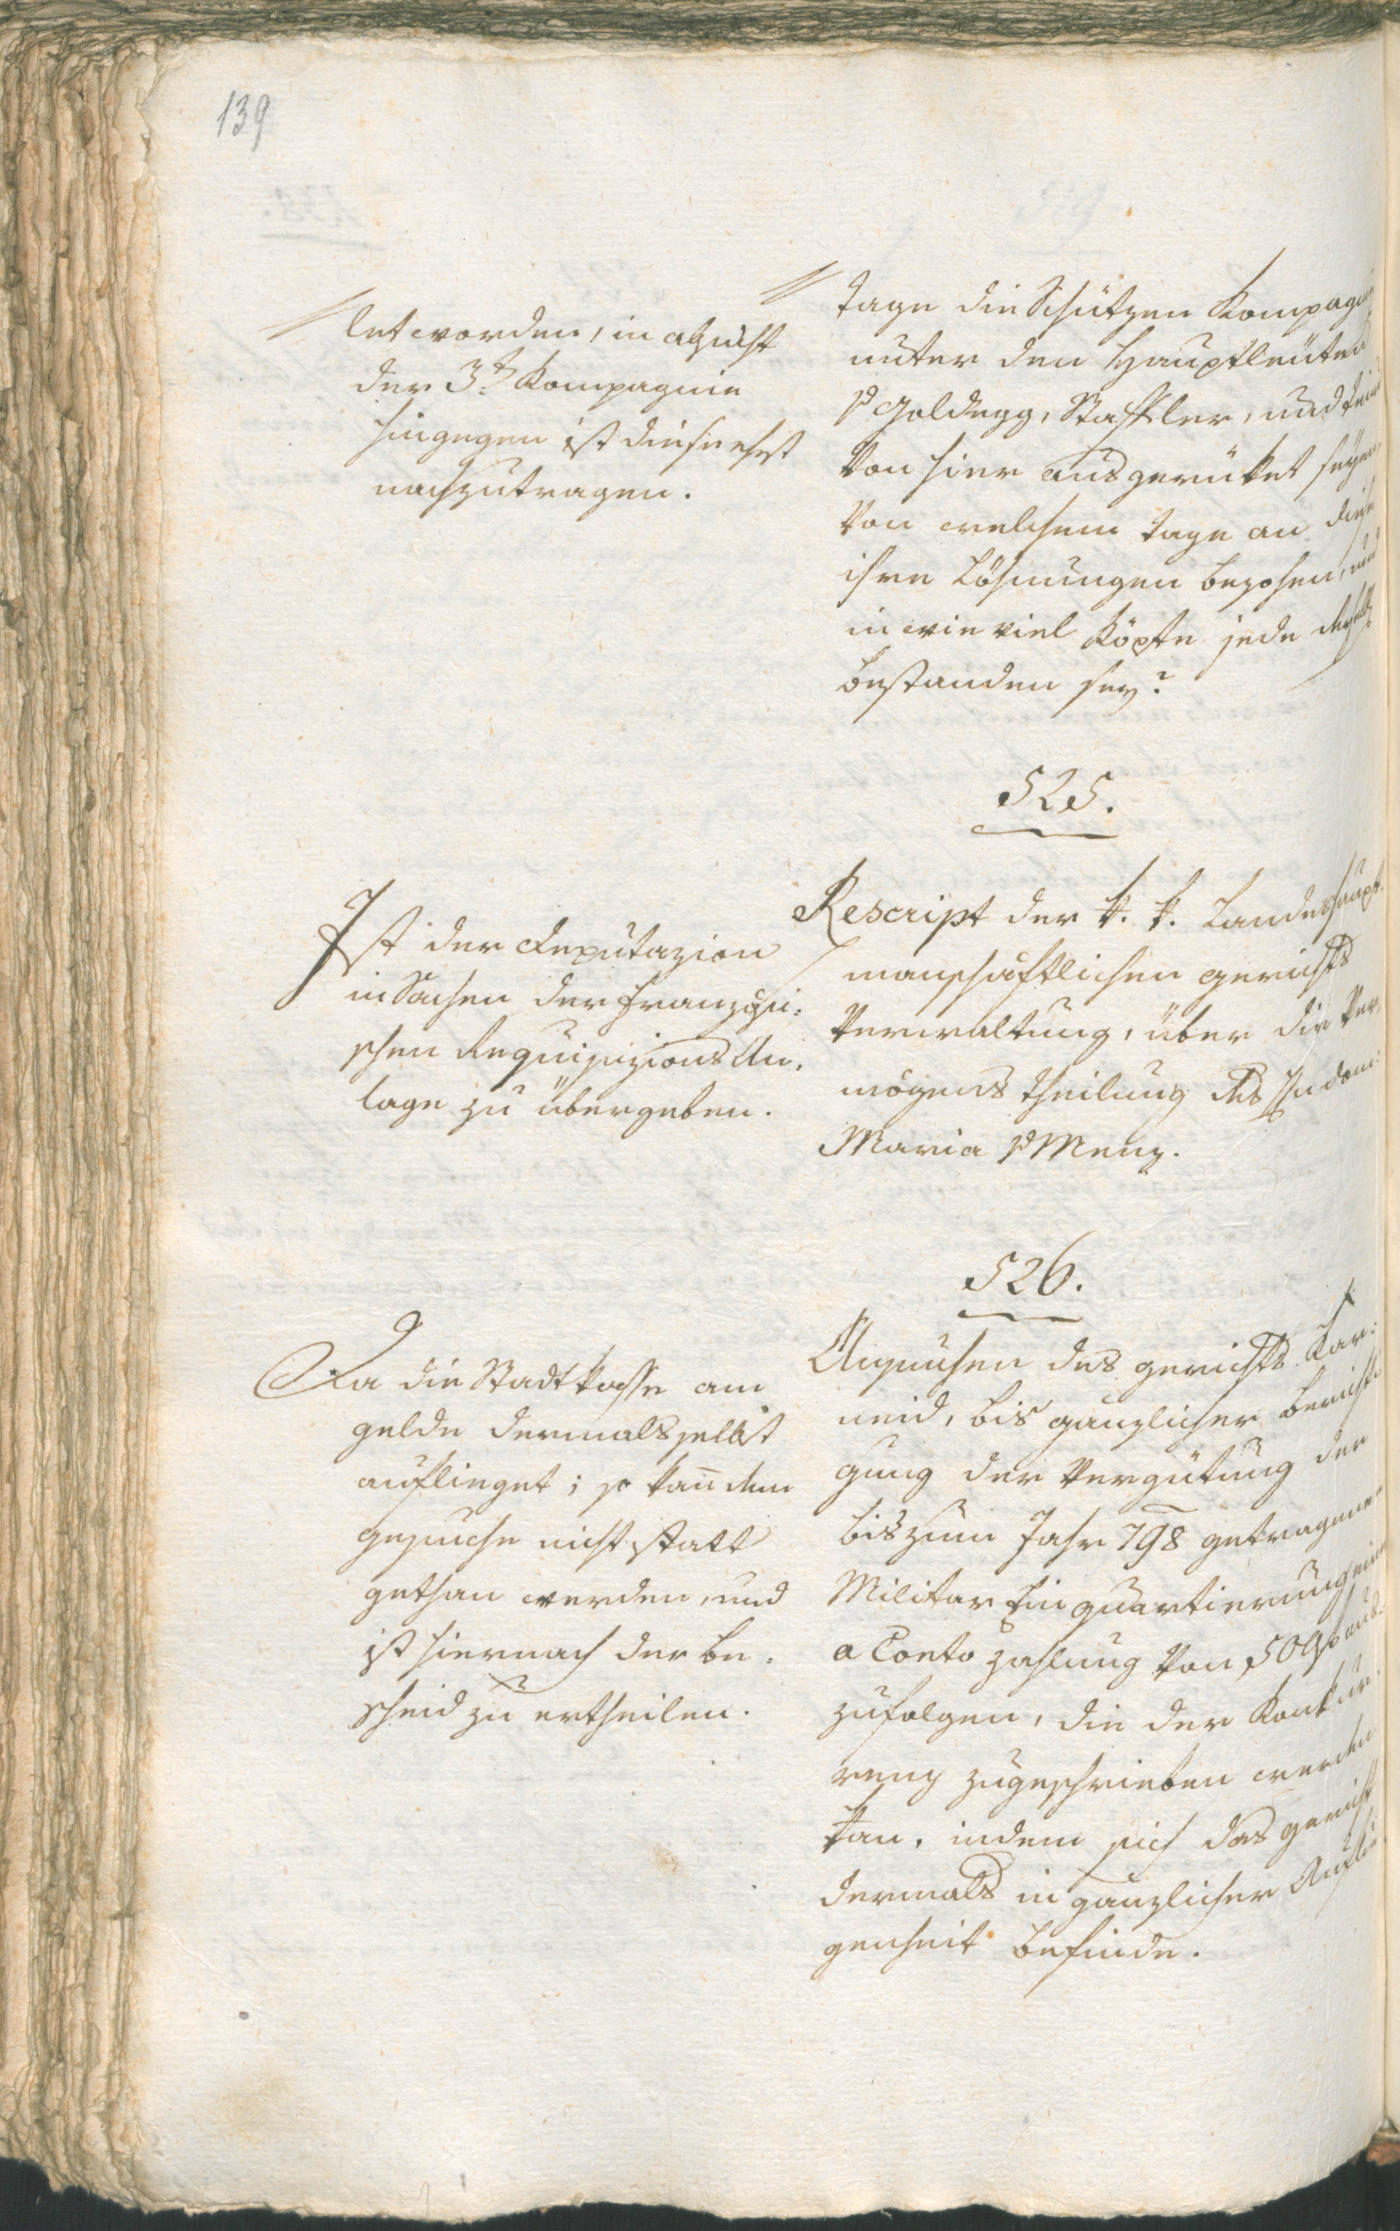 139
let worden, in absicht
der 3t Kompagnie
hingegen ist diese erst
nachzutragen.
tage die Schützen Kompagnie
unter den Hauptleüten
v Goldegg, Stafler, und
von hier ausgerüket seyen
von welchem tage an diese
ihre Löhnungen bezohen, und
in wie viel Köpfe jede derselb
bestanden sey?
525.
Ist der Deputazion
in Sachen der französi:
schen Requisizions An,
lage zu übergeben.
Rescript der k. k. Landeshaupt
manschaftlichen gerichts
Verwaltung, über die Ver,
mögens theilung des
Maria v Menz.
526.
Da die Stadtkasse am
gelde dermals selbst
aufliegt; so kan̄ dem
gesuche nicht statt
gethan werden, und
ist hiernach der be,
scheid zu ertheilen.
Ansuchen des gerichts Kar:
neid, bis gänzlicher berichti
gung der Vergütung der
bis zum Jahr 798 getragenen
Militar Einquartierung eine
a Conto zahlung von 500 f aus
zufolgen, die der Konkur
renz zugeschrieben werden
kan, indem sich das gericht
dermals in gänzlicher Aufli
genheit befinde.